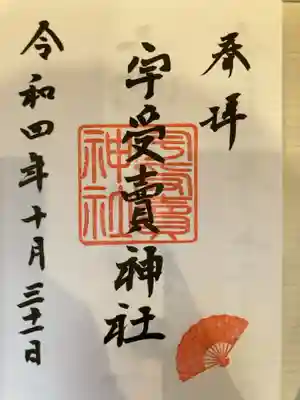 奉拝
宇受賣神社
宇受賣
神社
令和四年十月三十一日